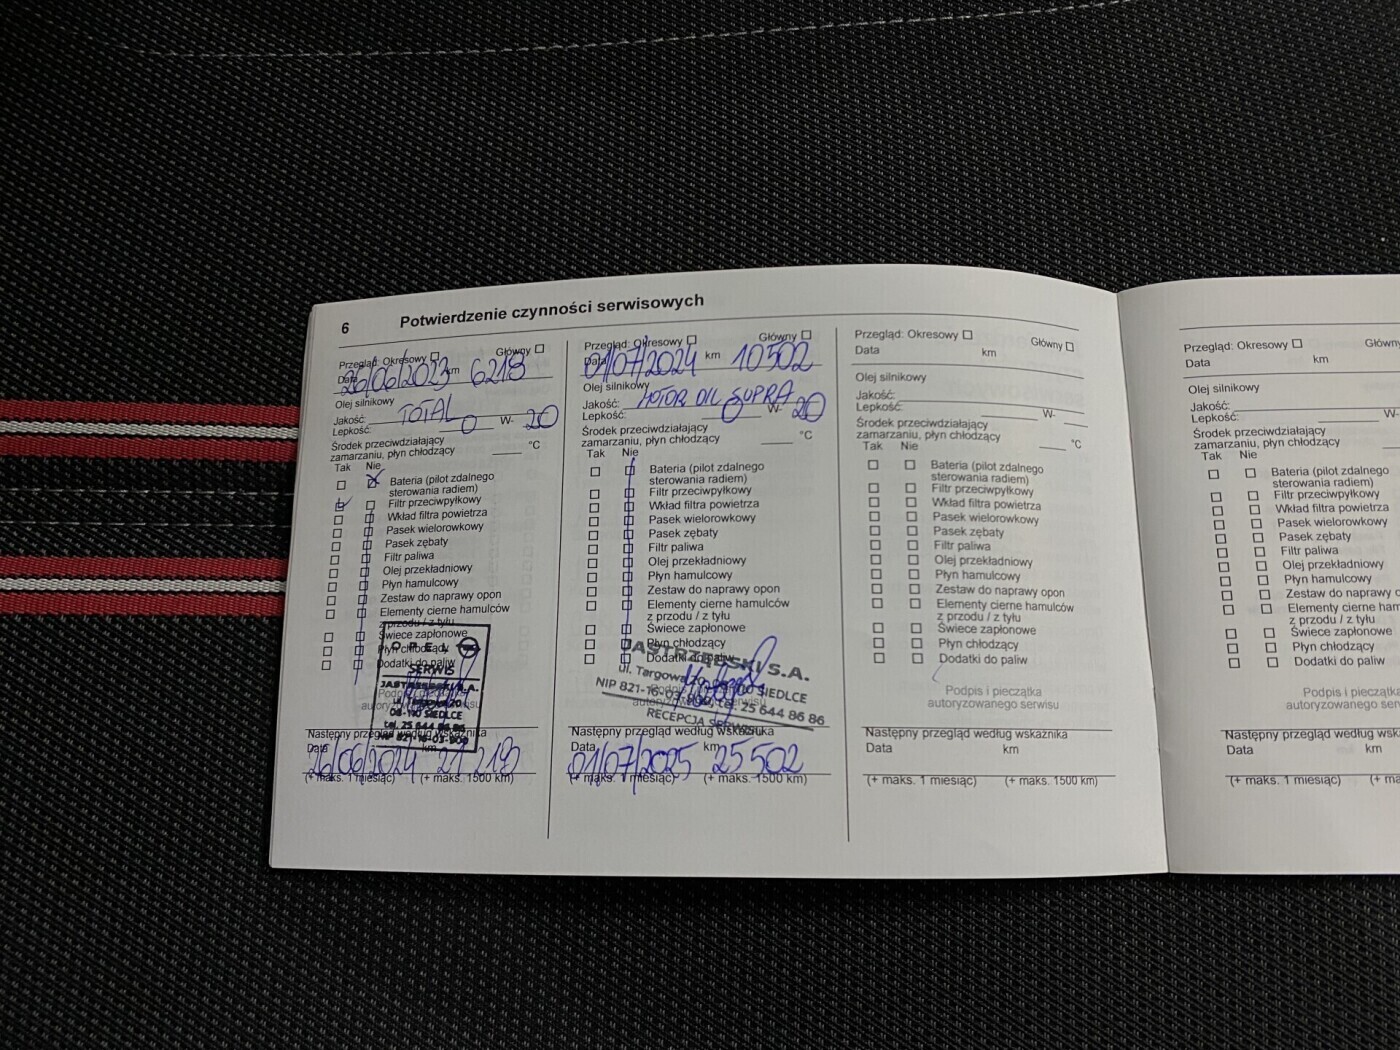 6
Potwierdzenie czynności serwisowych
Przegląd: Okresowy Główny
Data 26/06/2023 km 6218
Olej silnikowy
Jakość: TOTAL
Lepkość: 0 W- 20
Środek przeciwdziałający
zamarzaniu, płyn chłodzący °C
Tak Nie
Bateria (pilot zdalnego
sterowania radiem)
Filtr przeciwpyłkowy
Wkład filtra powietrza
Pasek wielorowkowy
Pasek zębaty
Filtr paliwa
Olej przekładniowy
Płyn hamulcowy
Zestaw do naprawy opon
Elementy cierne hamulców
z przodu / z tyłu
Świece zapłonowe
Płyn chłodzący
Dodatki do paliw
OPEL
SERWIS
JASTRZĘBSKI S.A.
ul. Targowa 20
08-110 SIEDLCE
tel. 25 644 86 86
NIP 821-16-03-900
Następny przegląd według wskaźnika
Data 26/06/2024 km 21 218
(+ maks. 1 miesiąc) (+ maks. 1500 km)
Przegląd: Okresowy Główny
Data 01/07/2024 km 10502
Olej silnikowy
Jakość: MOTOR OIL SUPRA
Lepkość: 0 W- 20
Środek przeciwdziałający
zamarzaniu, płyn chłodzący °C
Tak Nie
Bateria (pilot zdalnego
sterowania radiem)
Filtr przeciwpyłkowy
Wkład filtra powietrza
Pasek wielorowkowy
Pasek zębaty
Filtr paliwa
Olej przekładniowy
Płyn hamulcowy
Zestaw do naprawy opon
Elementy cierne hamulców
z przodu / z tyłu
Świece zapłonowe
Płyn chłodzący
Dodatki do paliw
JASTRZĘBSKI S.A.
ul. Targowa 20, SIEDLCE
NIP 821-16-03-900, tel. 25 644 86 86
RECEPCJA SERWISU
Następny przegląd według wskaźnika
Data 01/07/2025 km 25502
(+ maks. 1 miesiąc) (+ maks. 1500 km)
Przegląd: Okresowy Główny
Data km
Olej silnikowy
Jakość:
Lepkość: W-
Środek przeciwdziałający
zamarzaniu, płyn chłodzący °C
Tak Nie
Bateria (pilot zdalnego
sterowania radiem)
Filtr przeciwpyłkowy
Wkład filtra powietrza
Pasek wielorowkowy
Pasek zębaty
Filtr paliwa
Olej przekładniowy
Płyn hamulcowy
Zestaw do naprawy opon
Elementy cierne hamulców
z przodu / z tyłu
Świece zapłonowe
Płyn chłodzący
Dodatki do paliw
Podpis i pieczątka
autoryzowanego serwisu
Następny przegląd według wskaźnika
Data km
(+ maks. 1 miesiąc) (+ maks. 1500 km)
Przegląd: Okresowy Główny
Data km
Olej silnikowy
Jakość:
Lepkość: W-
Środek przeciwdziałający
zamarzaniu, płyn chłodzący
Tak Nie
Bateria (pilot zdalnego
sterowania radiem)
Filtr przeciwpyłkowy
Wkład filtra powietrza
Pasek wielorowkowy
Pasek zębaty
Filtr paliwa
Olej przekładniowy
Płyn hamulcowy
Zestaw do naprawy o
Elementy cierne ham
z przodu / z tyłu
Świece zapłonowe
Płyn chłodzący
Dodatki do paliw
Podpis i pieczątka
autoryzowanego ser
Następny przegląd według wsk
Data km
(+ maks. 1 miesiąc) (+ ma